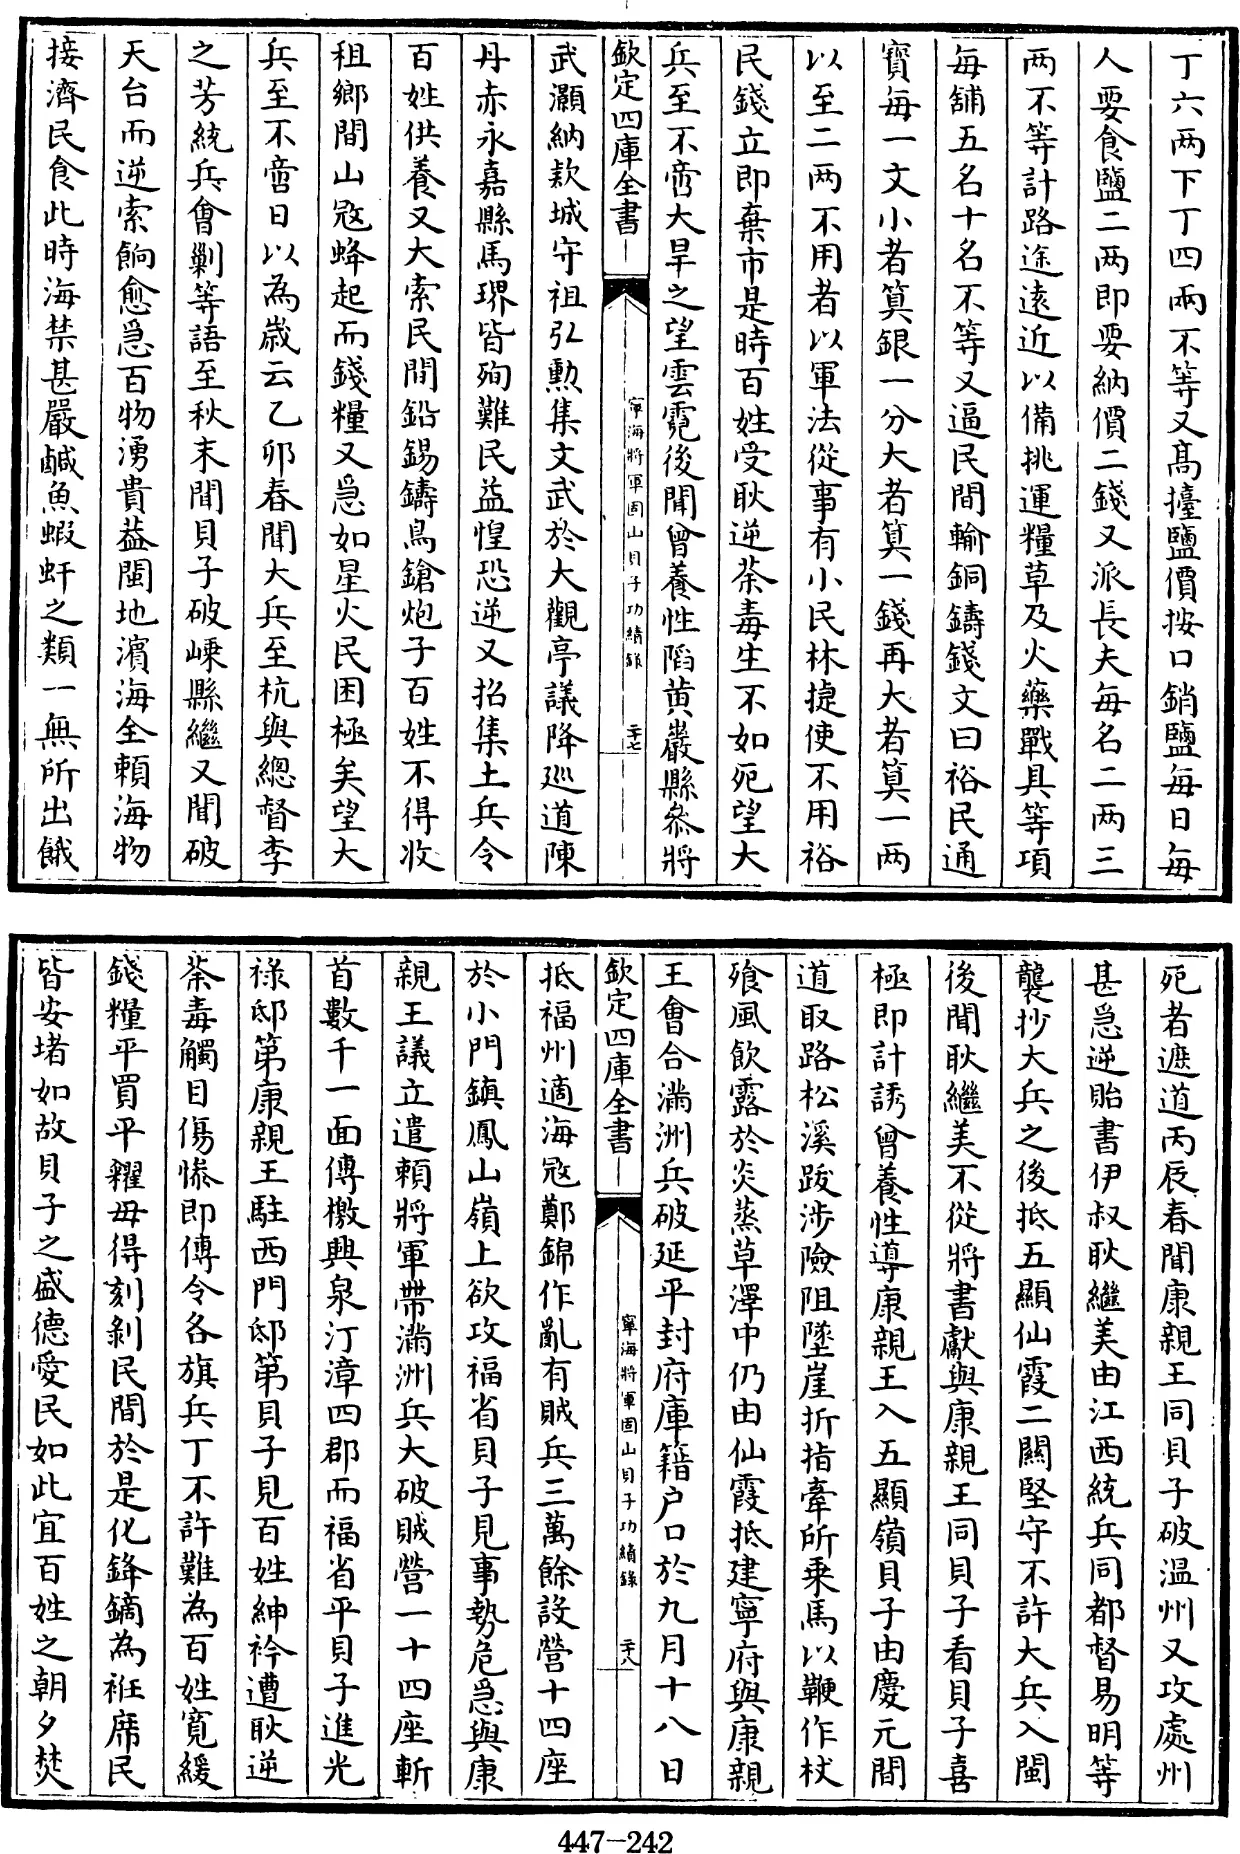 丁六两下丁四兩不等又髙擡鹽價按口銷鹽每日每
人要食鹽二两即要納價二錢又派長夫每名二两三
两不等計路途逺近以備挑運糧草及火藥戰具等項
每舖五名十名不等又逼民間輸銅鑄錢文曰裕民通
寳每一文小者筭銀一分大者筭一錢再大者筭一两
以至二两不用者以軍法從事有小民林捷使不用裕
民錢立即棄市是時百姓受耿逆荼毒生不如死望大
兵至不啻大旱之望雲霓後聞曾養性陷黄巖縣叅將
欽定四庫全書
寧海將軍固山貝子功績錄
二十七
武灝納欵城守祖弘勲集文武於大觀亭議降廵道陳
丹赤永嘉縣馬琾皆殉難民益惶恐逆又招集土兵令
百姓供養又大索民間鉛錫鑄鳥鎗炮子百姓不得收
租鄉間山冦蜂起而錢糧又急如星火民困極矣望大
兵至不啻日以為嵗云乙卯春聞大兵至杭與總督李
之芳統兵會剿等語至秋末聞貝子破嵊縣繼又聞破
天台而逆索餉愈急百物湧貴葢閩地濱海全頼海物
接濟民食此時海禁甚嚴鹹魚蝦虷之類一無所出餓
死者遮道丙辰春聞康親王同貝子破温州又攻處州
甚急逆貽書伊叔耿繼美由江西統兵同都督易明等
襲抄大兵之後抵五顯仙霞二關堅守不許大兵入閩
後聞耿繼美不從將書獻與康親王同貝子看貝子喜
極即計誘曾養性導康親王入五顯嶺貝子由慶元間
道取路松溪跋涉險阻墜崖折指牽所乗馬以鞭作杖
飱風飲露於炎蒸草澤中仍由仙霞抵建寧府與康親
王會合滿洲兵破延平封府庫籍户口於九月十八日
欽定四庫全書
寧海將軍固山貝子功績錄
二十八
抵福州適海冦鄭錦作亂有賊兵三萬餘設營十四座
於小門鎮鳳山嶺上欲攻福省貝子見事勢危急與康
親王議立遣頼將軍帶滿洲兵大破賊營一十四座斬
首數千一面傳檄興泉汀漳四郡而福省平貝子進光
禄邸第康親王駐西門邸第貝子見百姓紳衿遭耿逆
荼毒觸目傷慘即傳令各旗兵丁不許難為百姓寛緩
錢糧平買平糶毋得刻剝民間於是化鋒鏑為袵席民
皆安堵如故貝子之盛德愛民如此宜百姓之朝夕焚
447-242